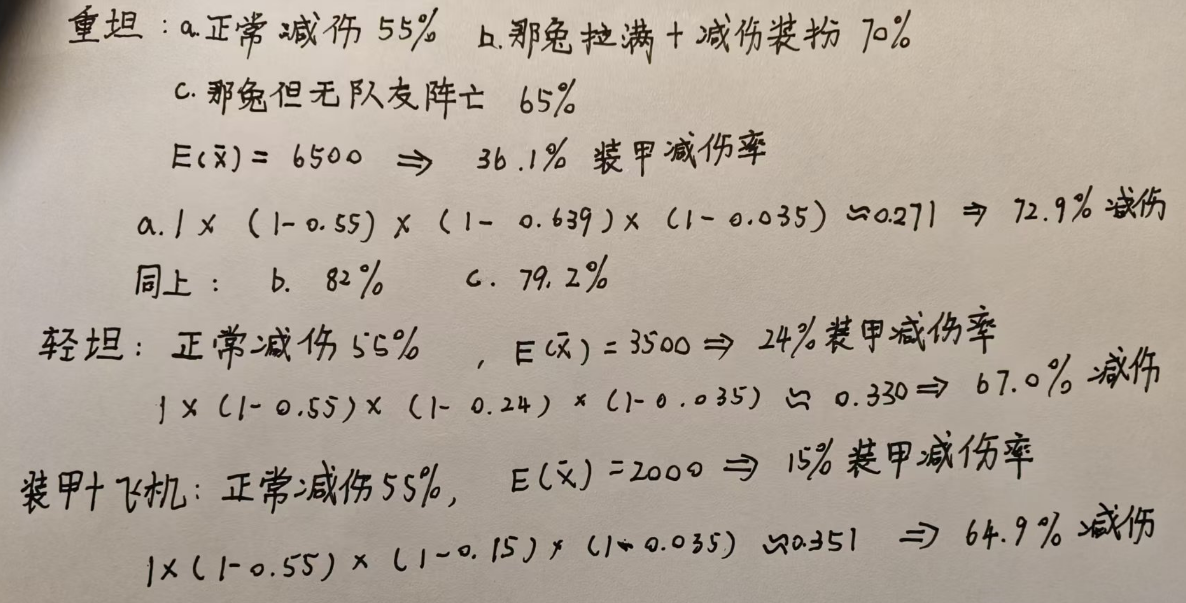 重坦：a.正常减伤 55%  b.那兔拉满+减伤装扮 70%
c. 那兔但无队友阵亡 65%
E(x̄) = 6500 ⇒ 36.1% 装甲减伤率
a. 1 × (1-0.55) × (1- 0.639) × (1-0.035) ≈0.271 ⇒ 72.9% 减伤
同上： b. 82%  c. 79.2%
轻坦：正常减伤 55% ，E(x̄) = 3500 ⇒ 24% 装甲减伤率
1 × (1-0.55) × (1- 0.24) × (1-0.035) ≈ 0.330 ⇒ 67.0% 减伤
装甲+飞机：正常减伤 55%， E(x̄) =2000 ⇒ 15% 装甲减伤率
1×(1-0.55) × (1-0.15) × (1-0.035) ≈0.351 ⇒ 64.9% 减伤